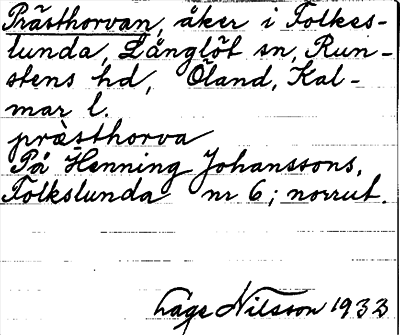 Prästhorvan, åker i Folkes-
lunda, Långlöt sn, Run-
stens hd, Öland, Kal-
mar l.
præsthorva
På Henning Johanssons,
Folkslunda nr 6; norrut.
Lage Nilsson 1933